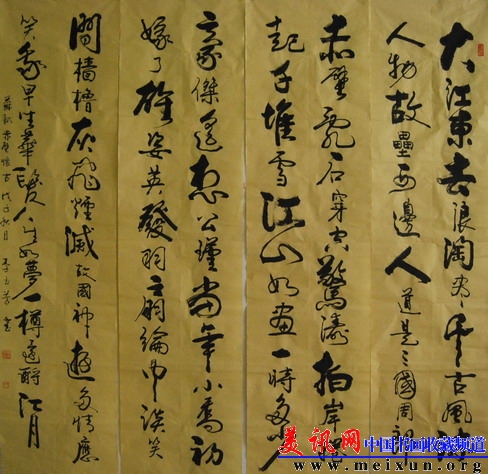 大江東去浪淘盡千古風流
人物故壘西邊人道是三國周郎
赤壁亂石穿空驚濤拍岸捲
起千堆雪江山如畫一時多少
豪傑遙想公瑾當年小喬初
嫁了雄姿英發羽扇綸巾談笑
間檣櫓灰飛煙滅故國神遊多情應
笑我早生華髮人生如夢一樽還酹江月
蘇軾赤壁懷古戊子秋月李書
美讯网 中国书画收藏频道
www.meixun.org